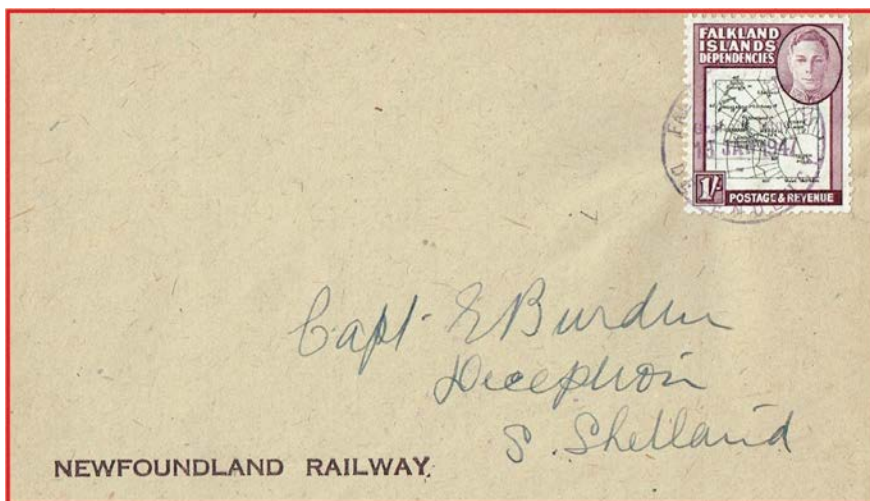 FALKLAND
ISLANDS
DEPENDENCIES
15 JAN 1947
1/-
POSTAGE & REVENUE
Capt. E Burden
Deception
S. Shetland
NEWFOUNDLAND RAILWAY.